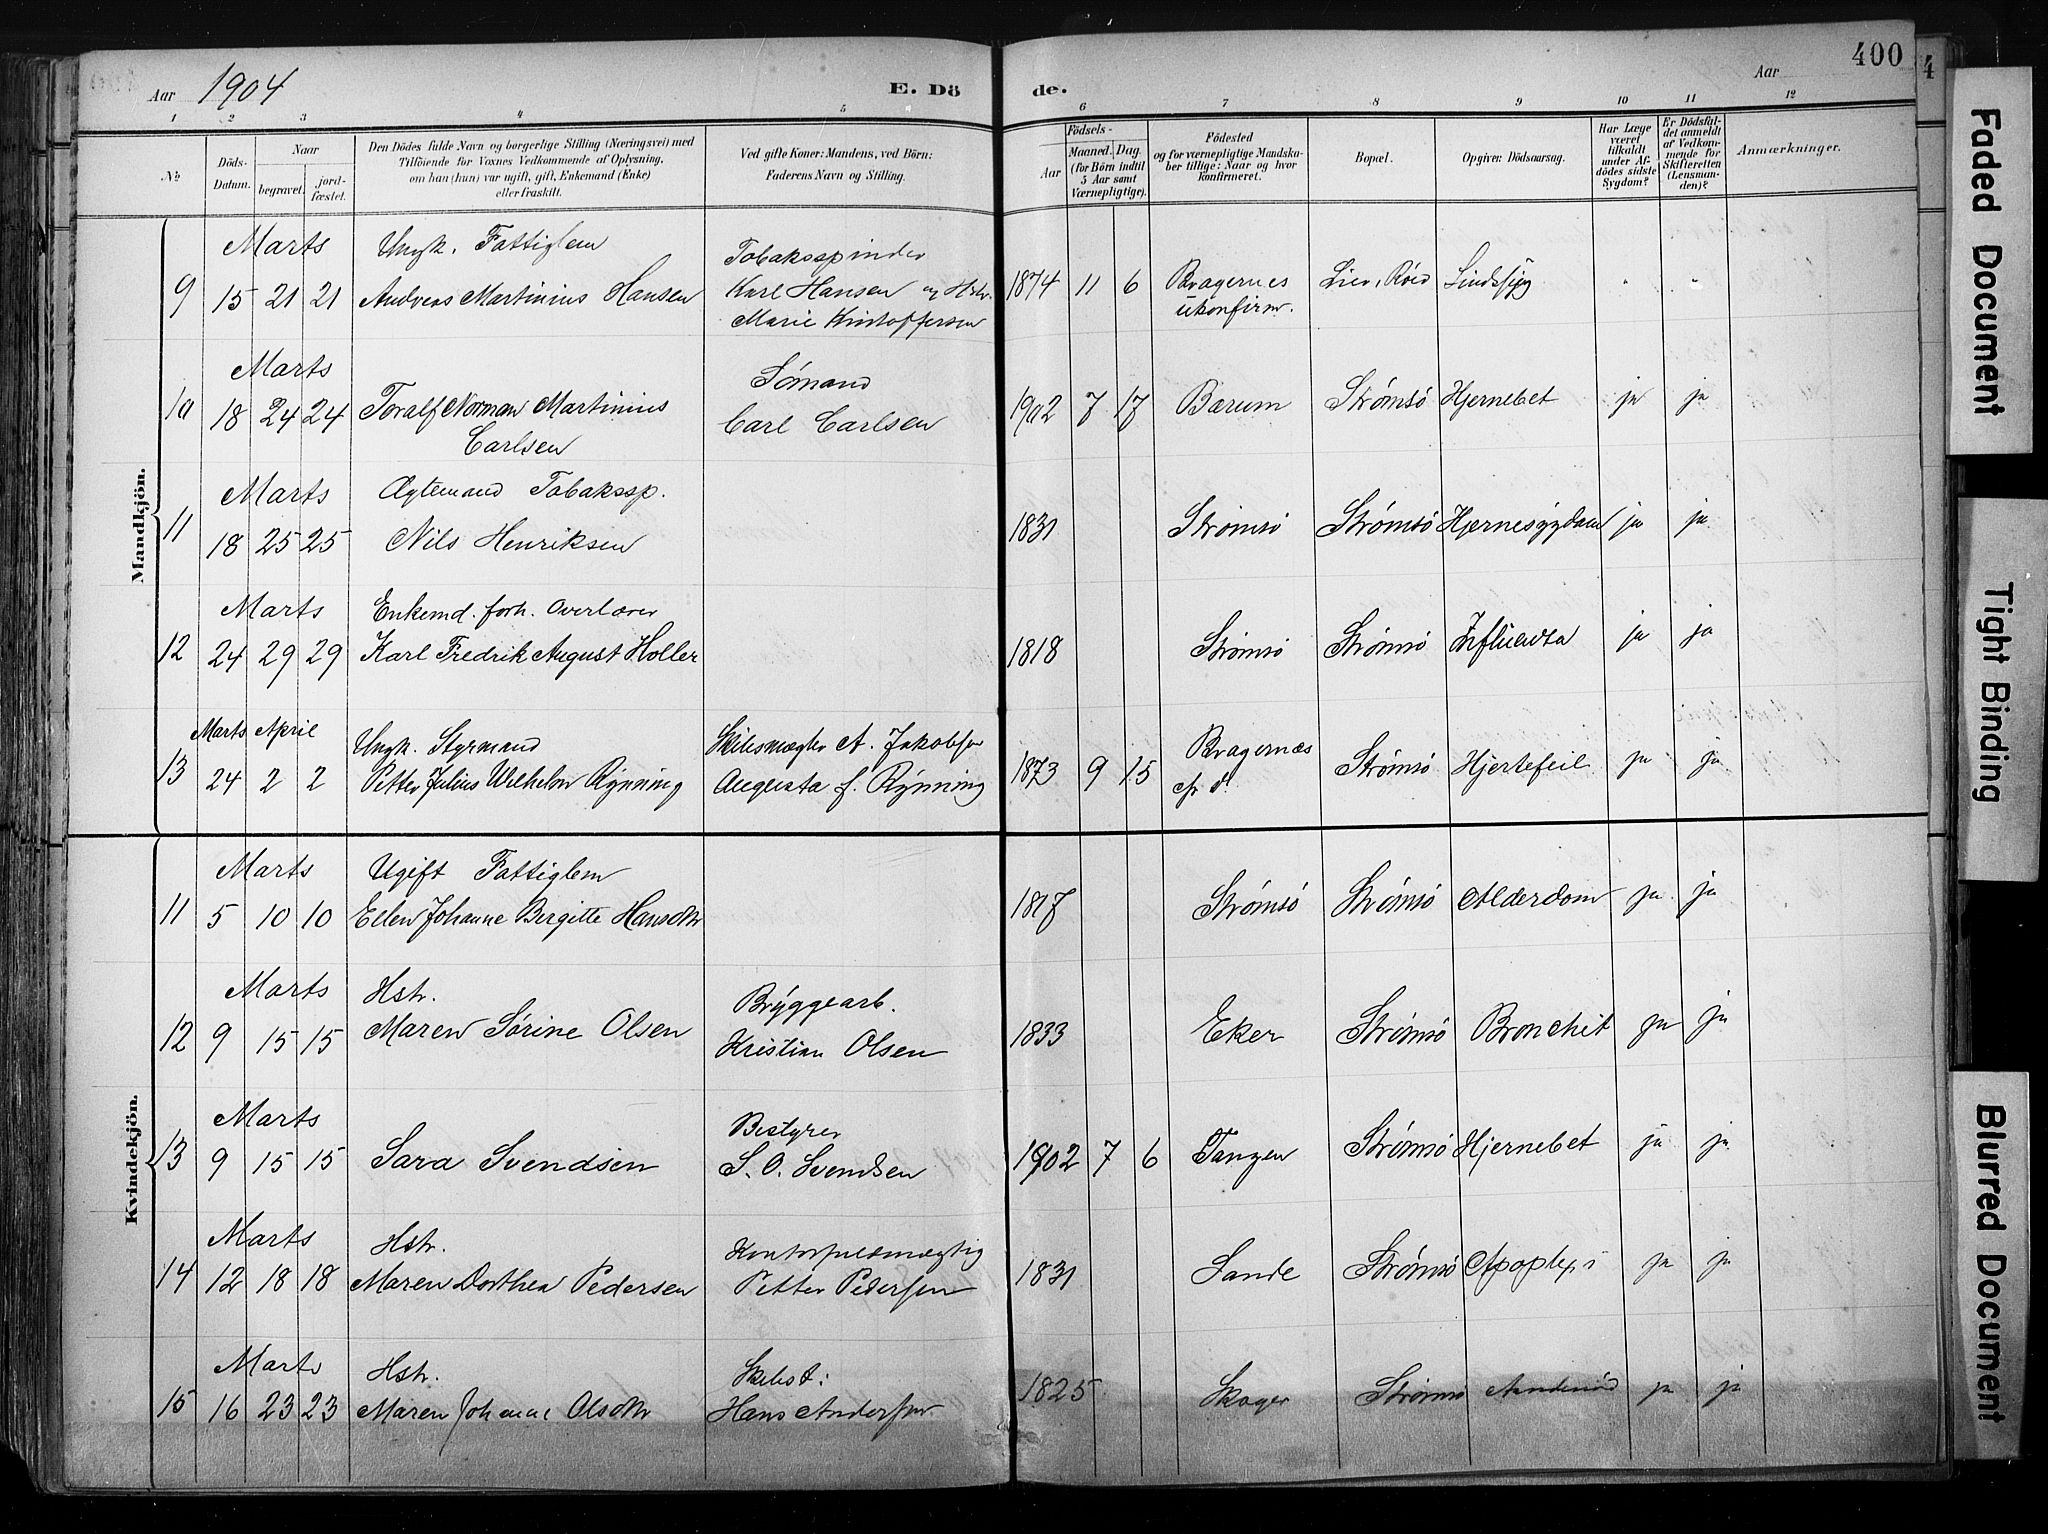 Aar 1904
E. Dö
de.
Aar
400
4
1 2 3 4 5 6 7 8 9 10 11 12
No
Döds-
Datum.
Naar
begravet.
jord-
fæstet.
Den Dödes fulde Navn og borgerlige Stilling (Næringsvei) med
Tilföiende for Voxnes Vedkommende af Oplysning,
om han (hun) var ugift, gift, Enkemand (Enke)
eller fraskilt.
Ved gifte Koner: Mandens, ved Börn:
Faderens Navn og Stilling.
Födsels-
Aar
Maaned. Dag.
(for Börn indtil
5 Aar samt
Værnepligtige).
Födested
og for værnepligtige Mandska-
ber tillige: Naar og hvor
Konfirmeret.
Bopæl.
Opgiven Dödsaarsag.
Har Læge
været
tilkaldt
under Af-
dödes sidste
Sygdom?
Er Dödsfal-
det anmeldt
af Vedkom-
mende for
Skifteretten
(Lensman-
den)?
Anmærkninger.
Mandkjön.
Marts Ungk. Fattiglem Tobaksspinder
9 15 21 21 Andreas Martinius Hansen Karl Hansen og Hstr. 1874 11 6 Bragernes Lier, Lindsýg " "
Marie Kristoffersen ukonfirm.
Marts Sømand
10 18 24 24 Toralf Norman Martinius Carl Carlsen 1902 7 17 Bærum Strømsø Hjernebet ja ja
Carlsen
Marts Ægtemand Tobakssp.
11 18 25 25 Nils Henriksen 1831 Strømsø Strømsø Hjernesýgdom ja ja
Marts Enkemd. forh. Overlærer
12 24 29 29 Karl Fredrik August Holler 1818 Strømsø Strømsø Influenza ja ja
Marts April Ungk. Styrmand Skibsmægler A. Jakobsen Bragernæs
13 24 2 2 Petter Julius Wilhelm Rýnning Augusta f. Rýnning 1873 9 15 Strømsø Hjertefeil ja ja
Kvindekjön.
Marts Ugift Fattiglem
11 5 10 10 Ellen Johanne Bergitte Hansdtr 1817 Strømsø Strømsø Alderdom ja ja
Marts Hstr. Brýggearb.
12 9 15 15 Maren Sørine Olsen Kristian Olsen 1833 Eker Strømsø Bronchit ja ja
Marts Bestyrer
13 9 15 15 Sara Svendsen S. O. Svendsen 1902 7 6 Tangen Strømsø Hjernebet ja ja
Marts Hstr. Kontorfuldmægtig
14 12 18 18 Maren Dorthea Pedersen Petter Pedersen 1831 Sande Strømsø Apoplexi ja ja
Marts Hstr. Skibst:
15 16 23 23 Maren Johanne Olsdtr Hans Andersen 1825 Skoger Strømsø Aandenød ja ja
Faded Document
Tight Binding
Blurred Document